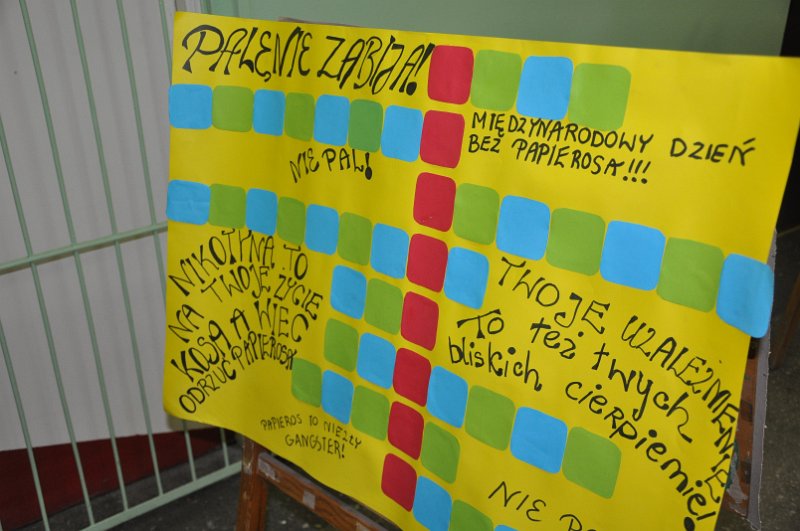 PALENIE ZABIJA!
MIĘDZYNARODOWY DZIEŃ
BEZ PAPIEROSA!!!
NIE PAL!
NIKOTYNA TO
NA TWOJE ŻYCIE
KOSA A WIĘC
ODRZUĆ PAPIEROSA
TWOJE UZALEŻNIENIE
TO też twych
bliskich cierpienie!
PAPIEROS TO NIEZŁY
GANGSTER!
NIE